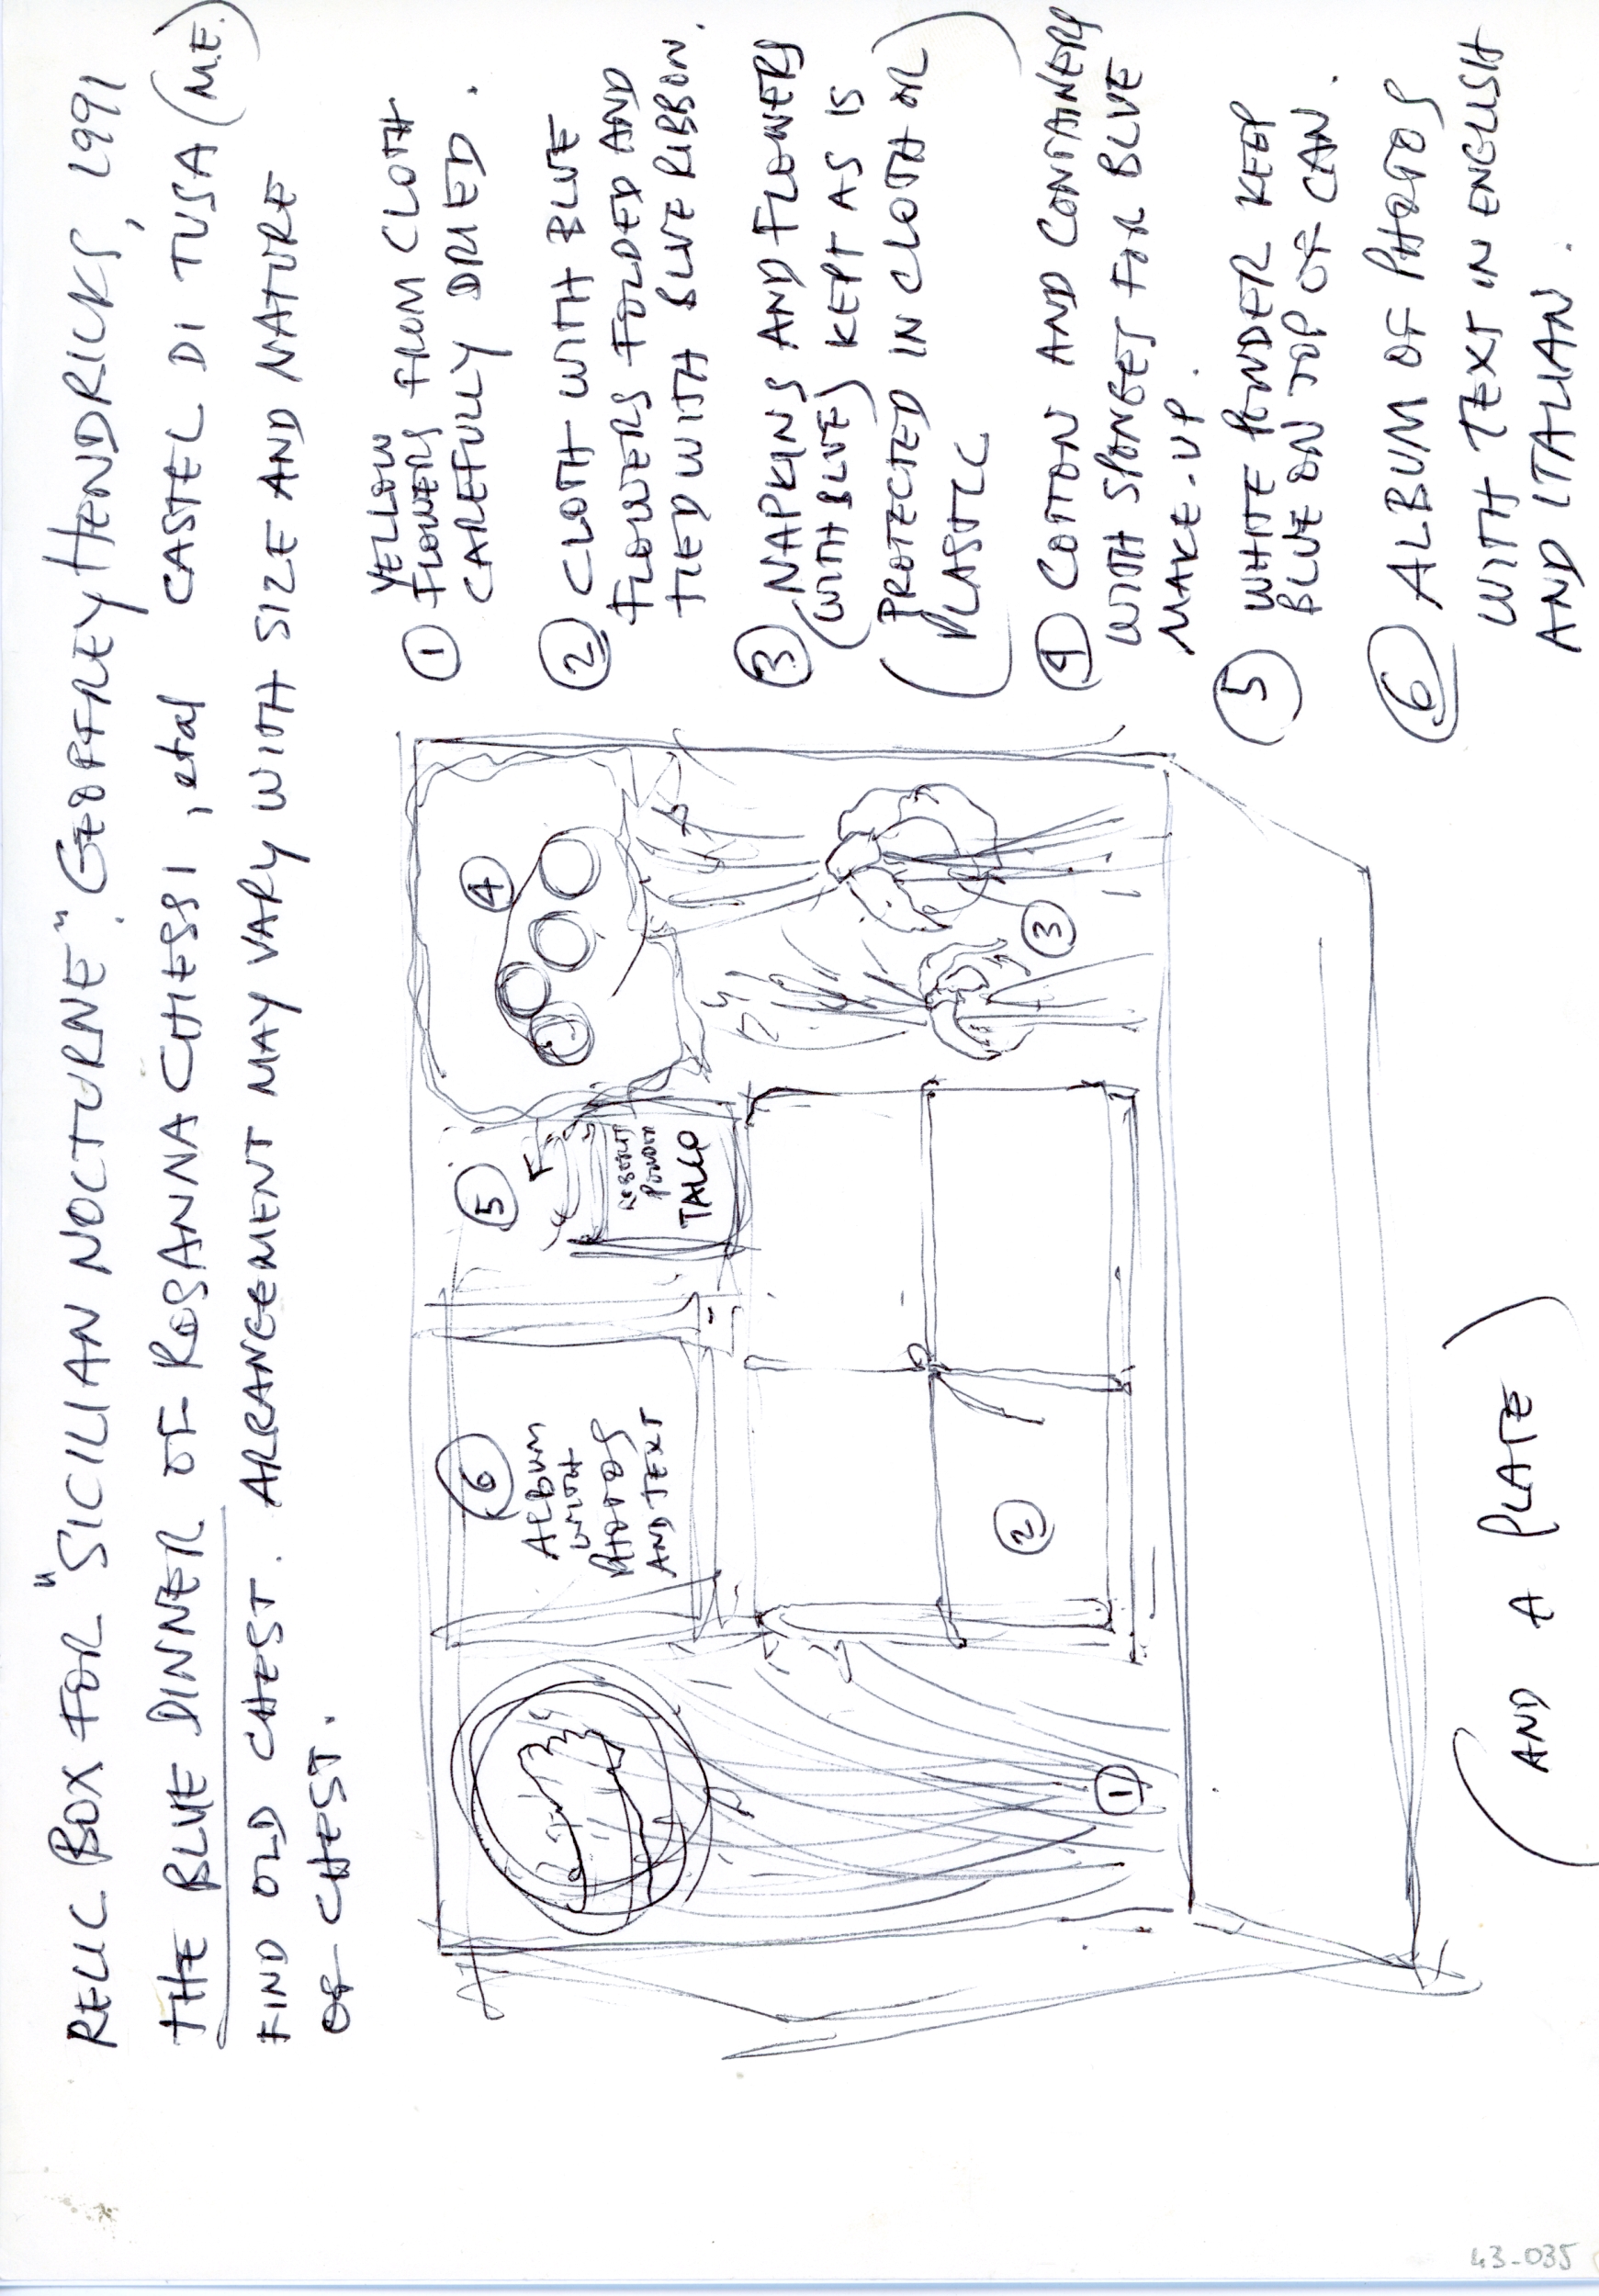 RELIC BOX FOR "SICILIAN NOCTURNE". GEOFFREY HENDRICKS, 1991
THE BLUE DINNER OF ROSANNA CHESSI, etal CASTEL DI TUSA (M.E.)
FIND OLD CHEST. ARRANGEMENT MAY VARY WITH SIZE AND NATURE
OF CHEST.
① YELLOW
FLOWERS FROM CLOTH
CAREFULLY DRIED.
② CLOTH WITH BLUE
FLOWERS FOLDED AND
TIED WITH BLUE RIBBON.
③ NAPKINS AND FLOWERS
(WITH BLUE) KEPT AS IS
(PROTECTED IN CLOTH OR
PLASTIC)
④ COTTON AND CONTAINERS
WITH SPONGES FOR BLUE
MAKE-UP.
⑤ WHITE POWDER KEEP
BLUE ON TOP OF CAN.
⑥ ALBUM OF PHOTOS
WITH TEXT IN ENGLISH
AND ITALIAN.
⑥
ALBUM
WITH
PHOTOS
AND TEXT
⑤
POWDER
TALCO
④
①
②
③
(AND A PLATE)
43-035